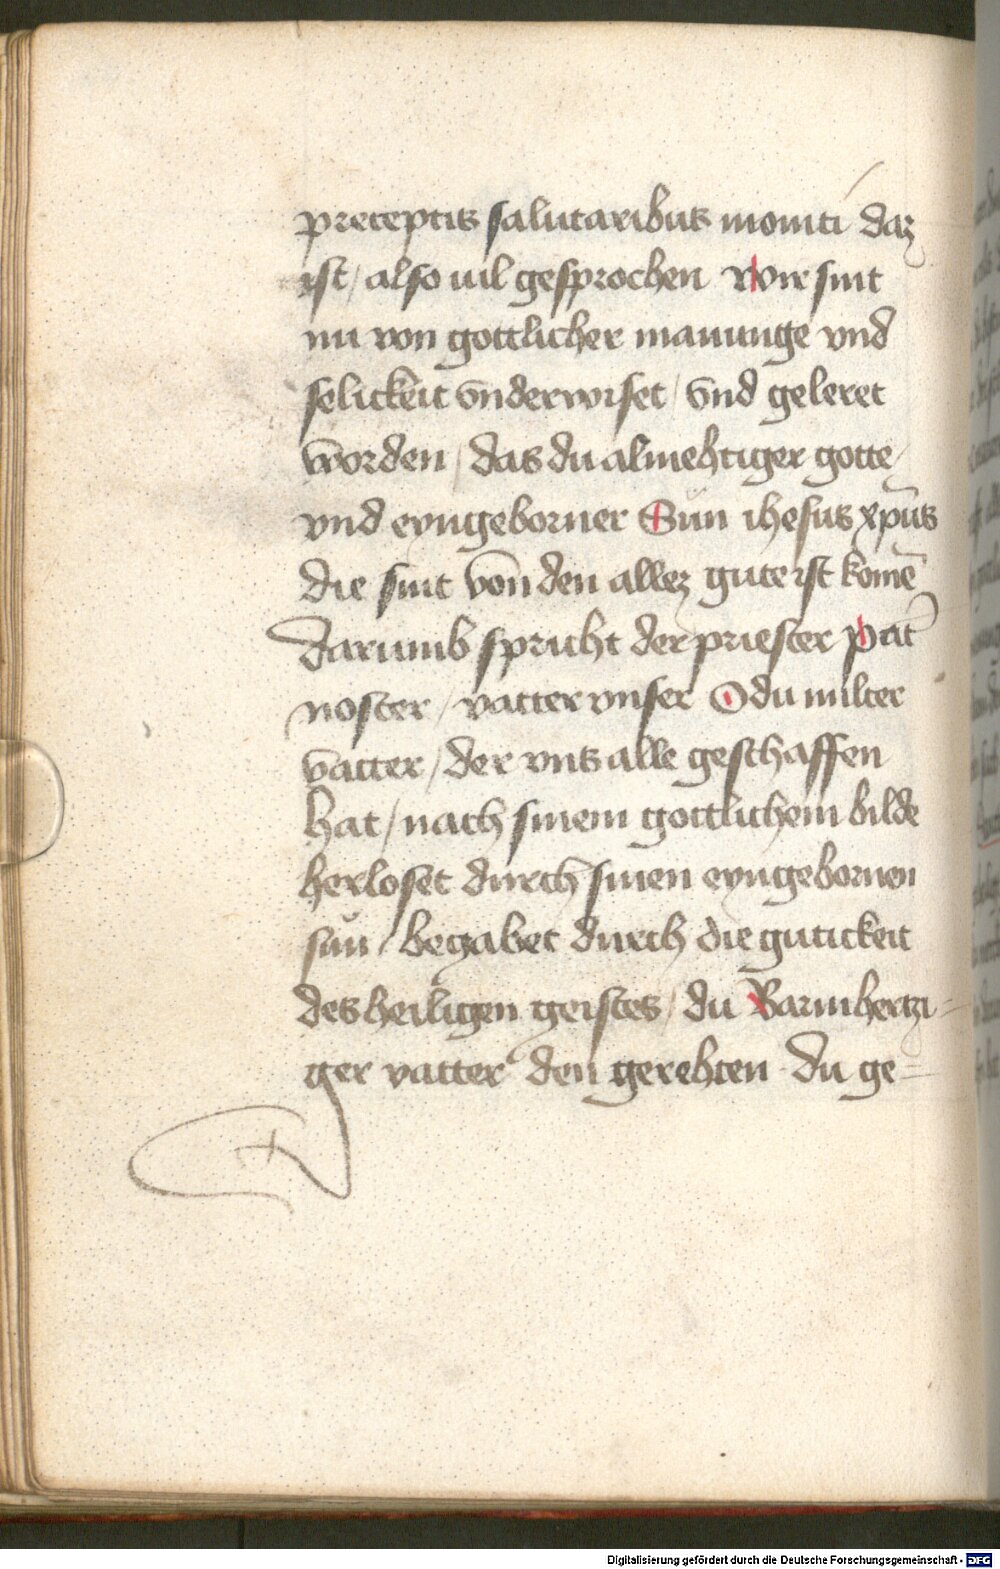 preceptis salutaribus moniti daz
ist / also uil gesprochen Wir sint
nu von gottlicher manunge vnd
selickeit vnderwiset / vnd geleret
worden / das du almehtiger gotte /
vnd eyngeborner Sun ihesus xp̄us
die sint von den allez gute ist komē
darumb spricht der priester Pat̄
noster / vatter vnser O du milter
vatter / der vns alle geschaffen
hat / nach sinem gottlichem bilde
herloset durch sinen eyngebornen
sun / begabet durch die gutickeit
des heiligen geistes / du Barmhertzi=
ger vatter den gerehten du ge=
Digitalisierung gefördert durch die Deutsche Forschungsgemeinschaft - DFG